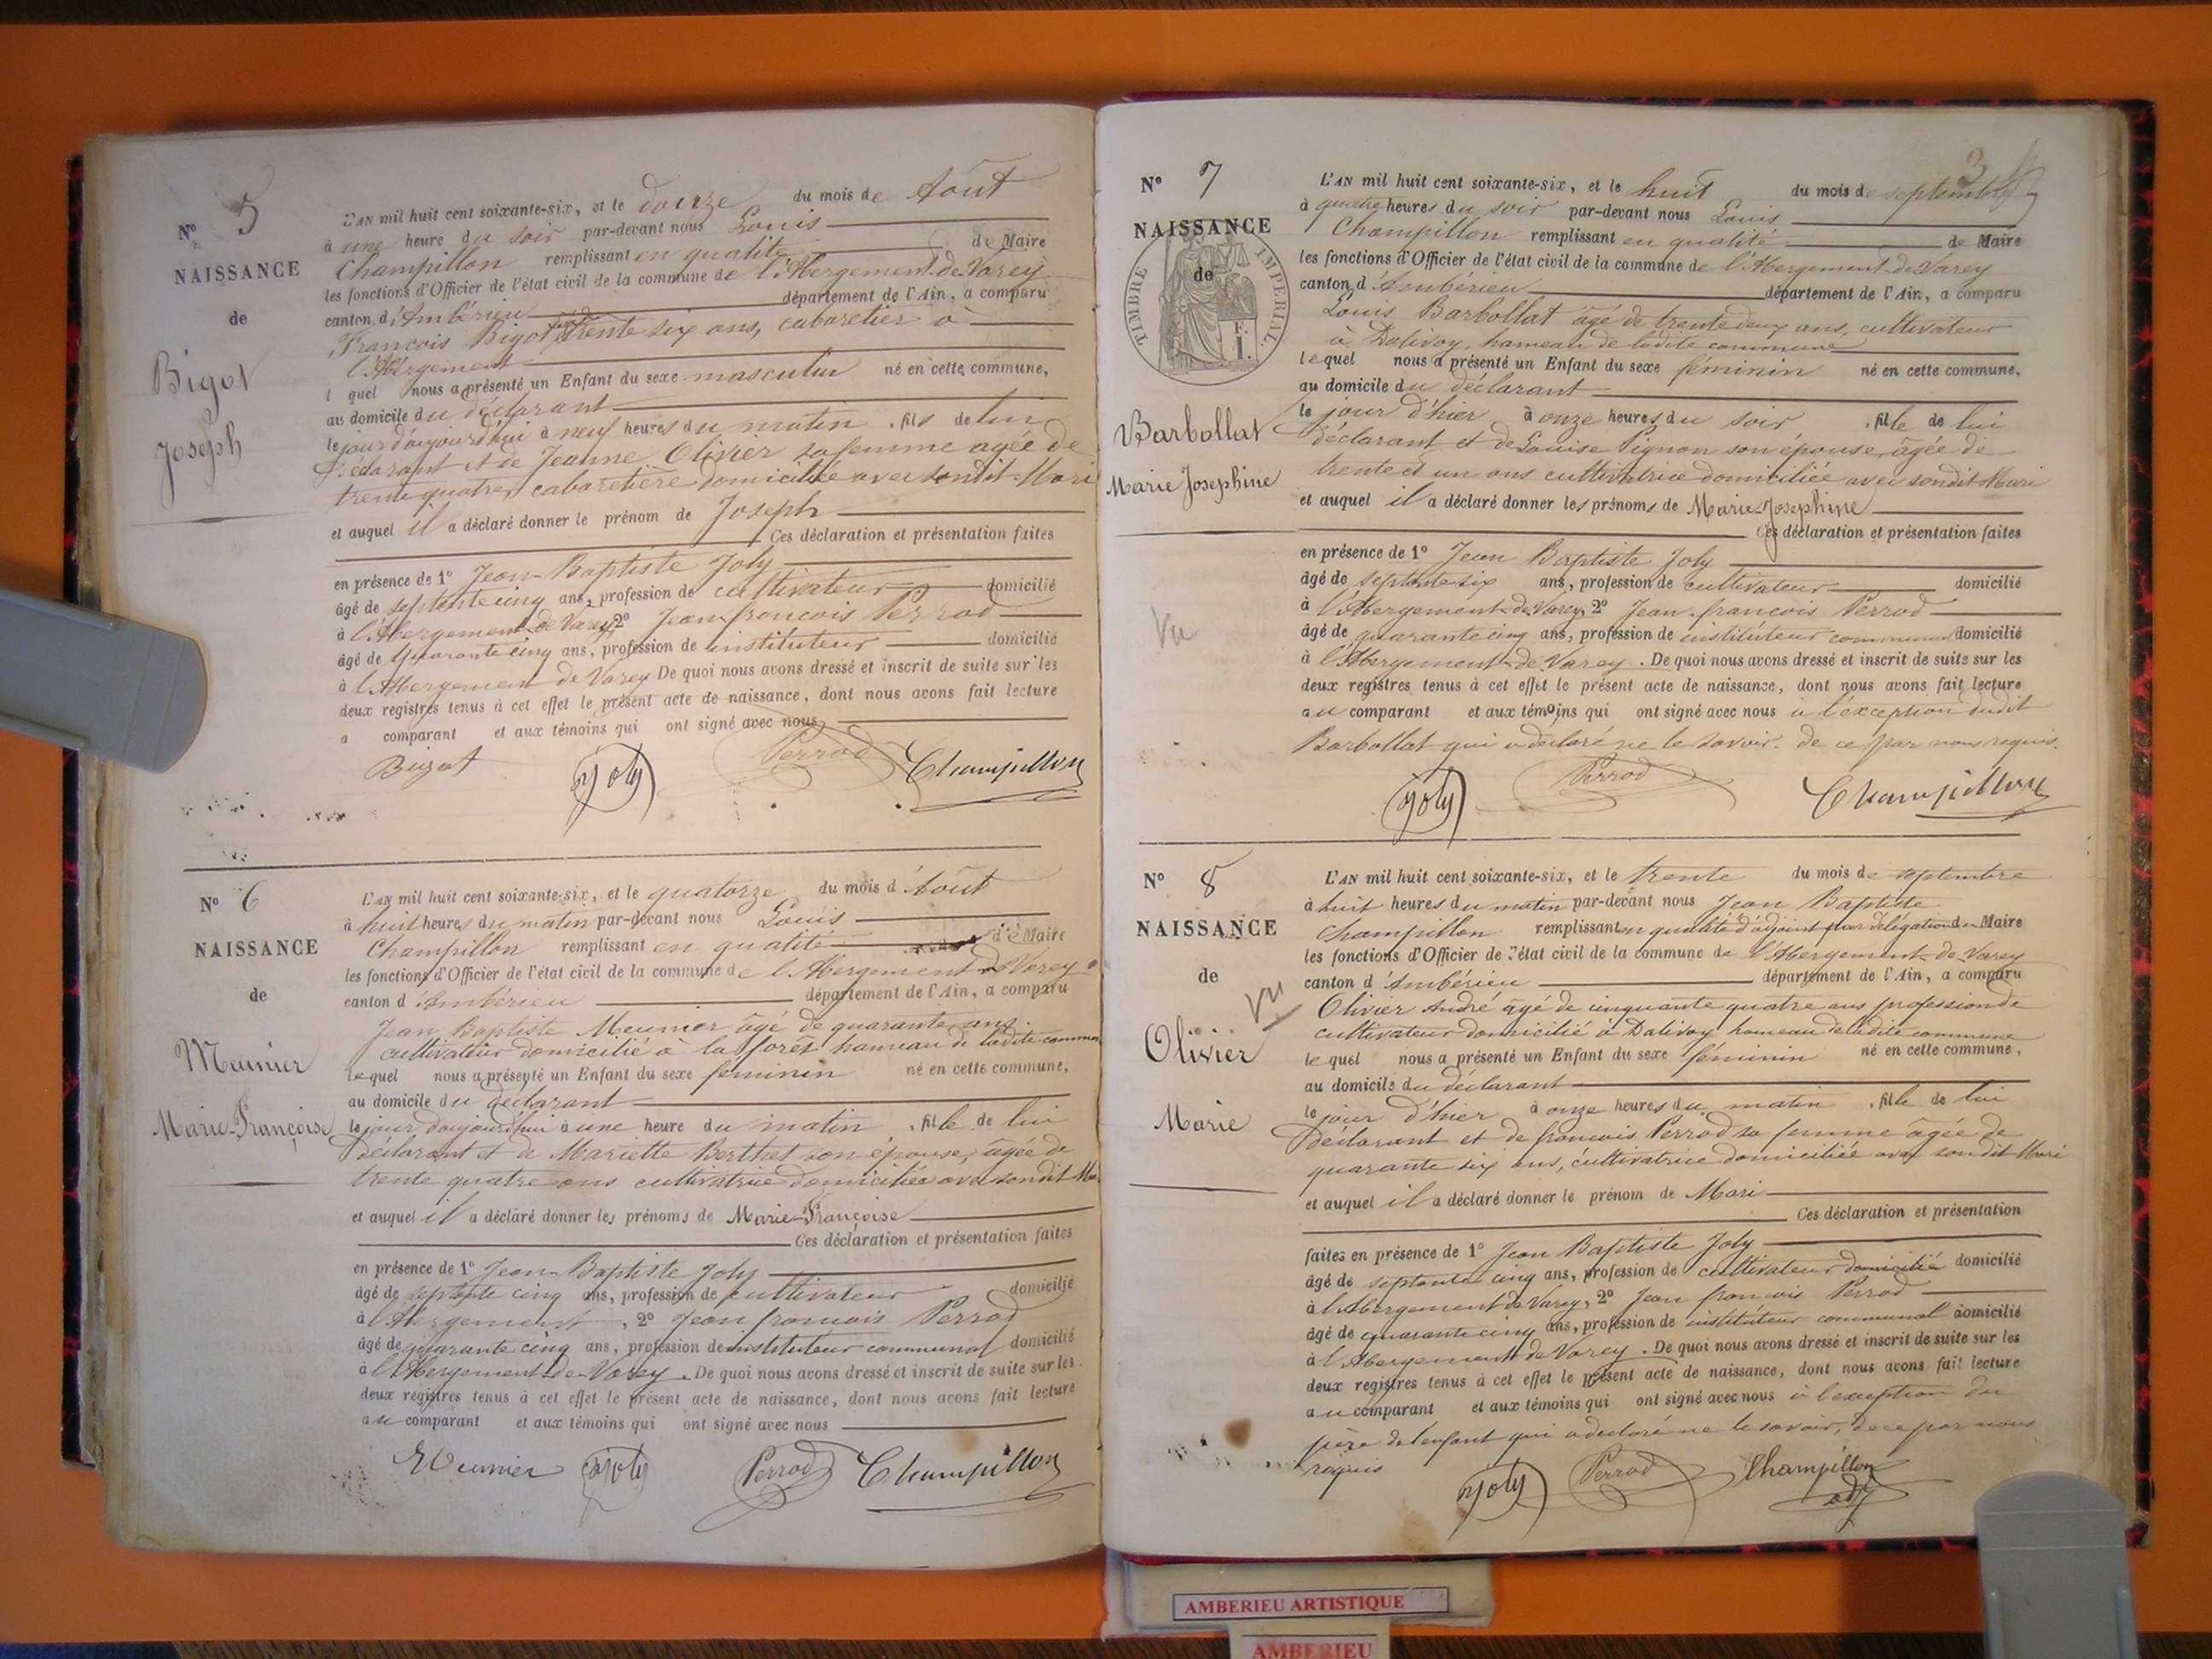 N° 5
NAISSANCE
de
Bigot
Joseph
L'AN mil huit cent soixante-six, et le douze du mois de Août
à une heure du soir par-devant nous Louis
Champillon remplissant en qualité de Maire
les fonctions d'Officier de l'état civil de la commune de l'Abergement-de-Varey
canton d'Ambérieu département de l'Ain, a comparu
François Bigot trente six ans, cabaretier à
l'Abergement
l quel nous a présenté un Enfant du sexe masculin né en cette commune,
au domicile du déclarant
le jour d'aujourd'hui à neuf heures du matin, fils de lui
déclarant et de Jeanne Olivier sa femme agée de
trente quatre, cabaretière domiciliée avec sondit Mari
et auquel il a déclaré donner le prénom de Joseph
Ces déclaration et présentation faites
en présence de 1° Jean-Baptiste Joly
âgé de septente cinq ans, profession de cultivateur domicilié
à l'Abergement de Varey, 2° Jean françois Perrod
âgé de quarante cinq ans, profession de instituteur domicilié
à l'Abergement de Varey De quoi nous avons dressé et inscrit de suite sur les
deux registres tenus à cet effet le présent acte de naissance, dont nous avons fait lecture
a comparant et aux témoins qui ont signé avec nous
Bigot Joly Perrod Champillon
N° 6
NAISSANCE
de
Meunier
Marie-Françoise
L'AN mil huit cent soixante-six, et le quatorze du mois d'Août
à huit heures du matin par-devant nous Louis
Champillon remplissant en qualité de Maire
les fonctions d'Officier de l'état civil de la commune de l'Abergement de Varey
canton d'Ambérieu département de l'Ain, a comparu
Jean Baptiste Meunier âgé de quarante ans
cultivateur domicilié à la forêt hameau de ladite commune
lequel nous a présenté un Enfant du sexe féminin né en cette commune,
au domicile du déclarant
le jour d'aujourd'hui à une heure du matin, fille de lui
déclarant et de Mariette Berthet son épouse, âgée de
trente quatre ans cultivatrice domiciliée avec sondit Mari
et auquel il a déclaré donner les prénoms de Marie-Françoise
Ces déclaration et présentation faites
en présence de 1° Jean-Baptiste Joly
âgé de septente cinq ans, profession de cultivateur domicilié
à l'Abergement, 2° Jean françois Perrod
âgé de quarante cinq ans, profession de instituteur communal domicilié
à l'Abergement-de-Varey. De quoi nous avons dressé et inscrit de suite sur les
deux registres tenus à cet effet le présent acte de naissance, dont nous avons fait lecture
au comparant et aux témoins qui ont signé avec nous
Meunier Joly Perrod Champillon
3
N° 7
NAISSANCE
de
TIMBRE IMPERIAL.
Barbollat
Marie Josephine
Vu
L'AN mil huit cent soixante-six, et le huit du mois de septembre
à quatre heures du soir par-devant nous Louis
Champillon remplissant en qualité de Maire
les fonctions d'Officier de l'état civil de la commune de l'Abergement-de-Varey
canton d'Ambérieu département de l'Ain, a comparu
Louis Barbollat âgé de trente deux ans, cultivateur
à Dalivoy, hameau de ladite commune
lequel nous a présenté un Enfant du sexe féminin né en cette commune,
au domicile du déclarant
le jour d'hier à onze heures du soir, fille de lui
déclarant et de Louise Pignon son épouse, âgée de
trente et un ans cultivatrice domiciliée avec sondit Mari
et auquel il a déclaré donner les prénoms de Marie-Josephine
Ces déclaration et présentation faites
en présence de 1° Jean Baptiste Joly
âgé de septente six ans, profession de cultivateur domicilié
à l'Abergement-de-Varey, 2° Jean-françois Perrod
âgé de quarante cinq ans, profession de instituteur communal domicilié
à l'Abergement-de-Varey. De quoi nous avons dressé et inscrit de suite sur les
deux registres tenus à cet effet le présent acte de naissance, dont nous avons fait lecture
au comparant et aux témoins qui ont signé avec nous à l'exception dudit
Barbollat qui a déclaré ne le savoir. de ce par nous requis.
Joly Perrod Champillon
N° 8
NAISSANCE
de
Vu
Olivier
Marie
L'AN mil huit cent soixante-six, et le trente du mois de septembre
à huit heures du matin par-devant nous Jean Baptiste
Champillon remplissant en qualité d'adjoint par délégation du Maire
les fonctions d'Officier de l'état civil de la commune de l'Abergement-de-Varey
canton d'Ambérieu département de l'Ain, a comparu
Olivier André âgé de cinquante quatre ans profession de
cultivateur domicilié à Dalivoy hameau de ladite commune
lequel nous a présenté un Enfant du sexe féminin né en cette commune,
au domicile du déclarant
le jour d'hier à onze heures du matin, fille de lui
déclarant et de françois Perrod sa femme âgée de
quarante six ans, cultivatrice domiciliée avec sondit Mari
et auquel il a déclaré donner le prénom de Mari
Ces déclaration et présentation
faites en présence de 1° Jean Baptiste Joly
âgé de septente cinq ans, profession de cultivateur domicilié domicilié
à l'Abergement de Varey, 2° Jean françois Perrod
âgé de quarante cinq ans, profession de instituteur communal domicilié
à l'Abergement de Varey. De quoi nous avons dressé et inscrit de suite sur les
deux registres tenus à cet effet le présent acte de naissance, dont nous avons fait lecture
au comparant et aux témoins qui ont signé avec nous à l'exception du
père de l'enfant qui a déclaré ne le savoir, de ce par nous
requis
Joly Perrod Champillon
adj
AMBERIEU ARTISTIQUE
AMBERIEU